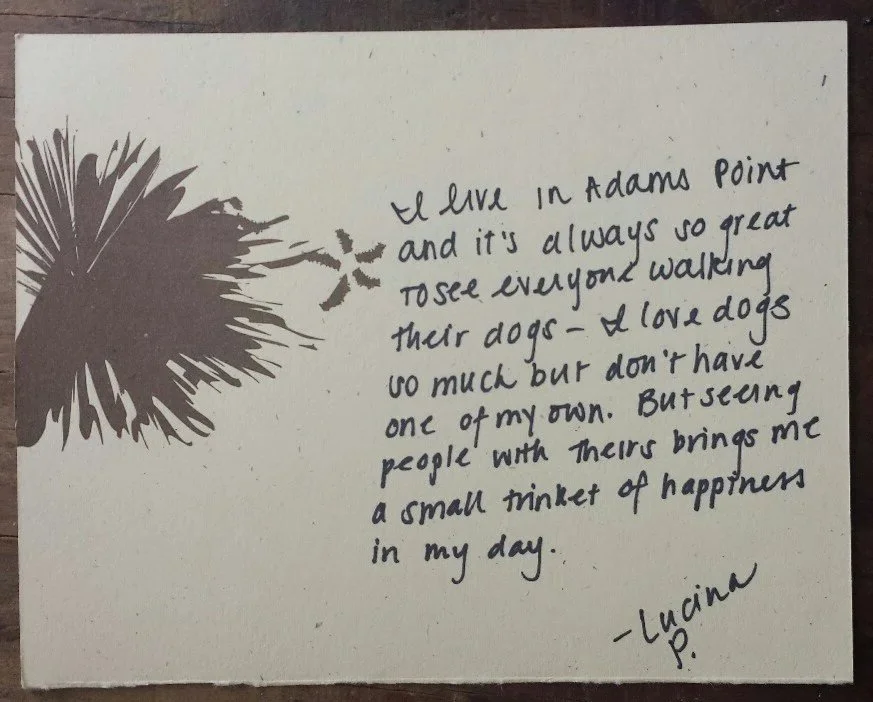 I live in Adams Point
and it's always so great
to see everyone walking
their dogs - I love dogs
so much but don't have
one of my own. But seeing
people with theirs brings me
a small trinket of happiness
in my day.
-Lucina
P.